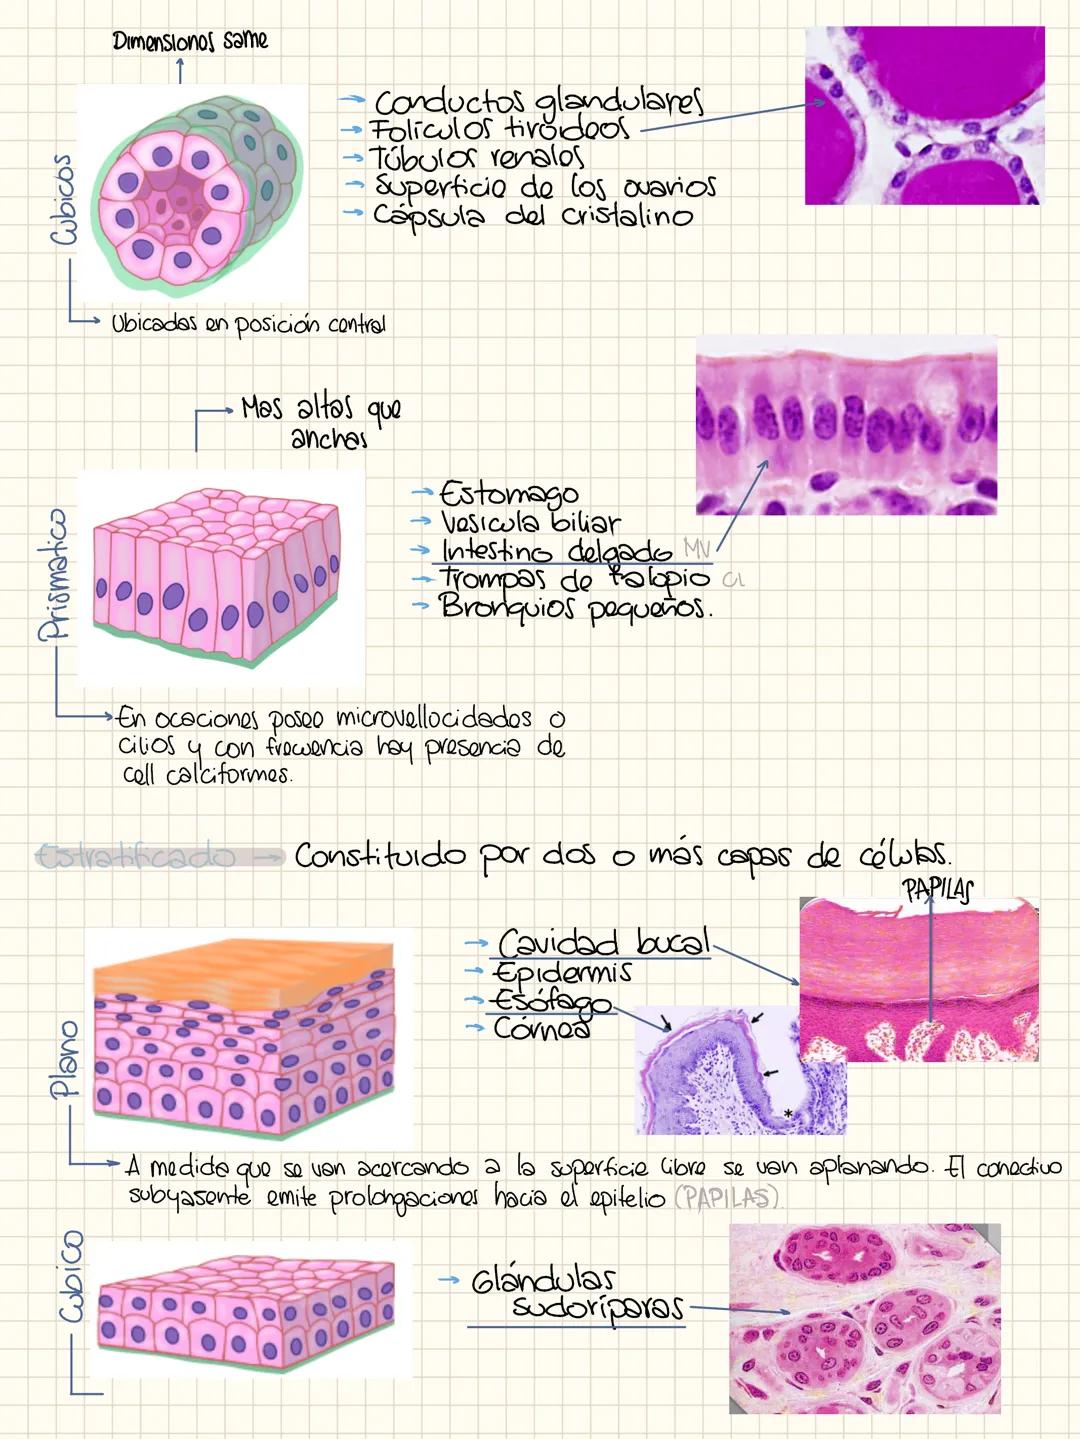 Dimensiones same
Cubicos
→ Conductos glandulares
→ Foliculos tiroideos
→ Túbulos renales
→ Superficie de los ovarios
→ Cápsula del cristalino
Ubicadas en posición central
Mas altas que
anchas
Prismatico
→ Estomago
→ Vesicula biliar
→ Intestino delgado MV
→ Trompas de falopio CL
→ Bronquios pequeños.
En ocaciones posee microvellocidades o
cilios y con frecuencia hay presencia de
cell calciformes.
Estratificado → Constituido por dos o más capas de células.
PAPILAS
Plano
→ Cavidad bucal
→ Epidermis
→ Esófago
→ Córnea
*
A medida que se van acercando a la superficie libre se van aplanando. El conectivo
subyasente emite prolongaciones hacia el epitelio (PAPILAS).
Cubico
→ Glándulas
sudoríparas